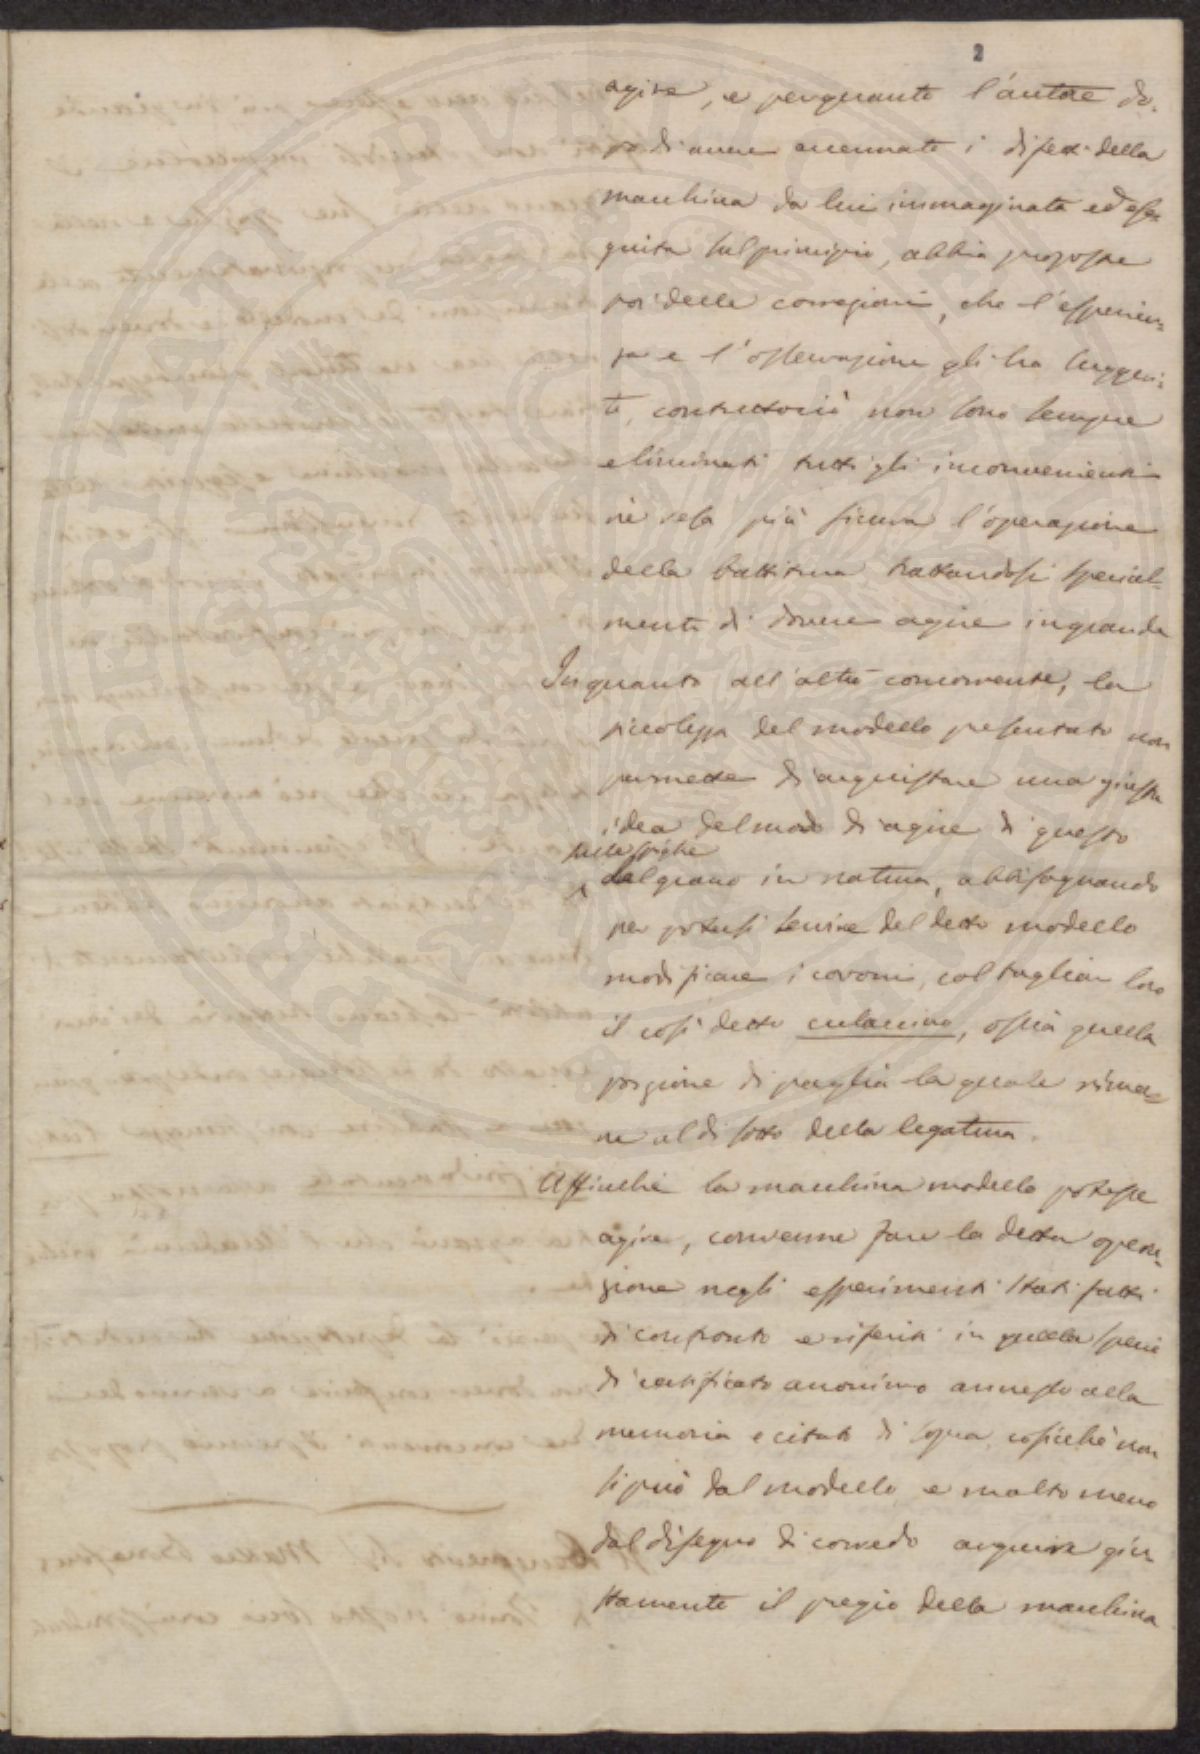 2
agire, e per quanto l'autore do-
po di avere accennate i difetti della
macchina da lui immaginata ed ese-
guita sul principio, abbia proposte
poi delle correzioni, che l'esperien-
za e l'osservazione gli ha suggeri-
te, contuttociò non sono sempre
eliminati tutti gli inconvenienti
nè resa più sicura l'operazione
della battitura trattandosi special-
mente di dovere agire in grande
In quanto all'altro concorrente, la
picolezza del modello presentato non
permette di acquistare una giusta
idea del modo di agire di questo
sulle spighe
del grano in natura, abbisognando
per potersi servire del detto modello
modificare i covoni, col tagliar loro
il così detto culaccino, ossia quella
porzione di paglia la quale rima-
ne al di sotto della legatura.
Affinchè la macchina modello potesse
agire, convenne fare la detta opera-
zione negli esperimenti stati fatti
di confronto e riferiti in quella specie
di certificato anonimo annesso alla
memoria e citati di sopra, cosicchè non
si può dal modello, e molto meno
dal disegno di corredo acquistare giu-
stamente il pregio della macchina